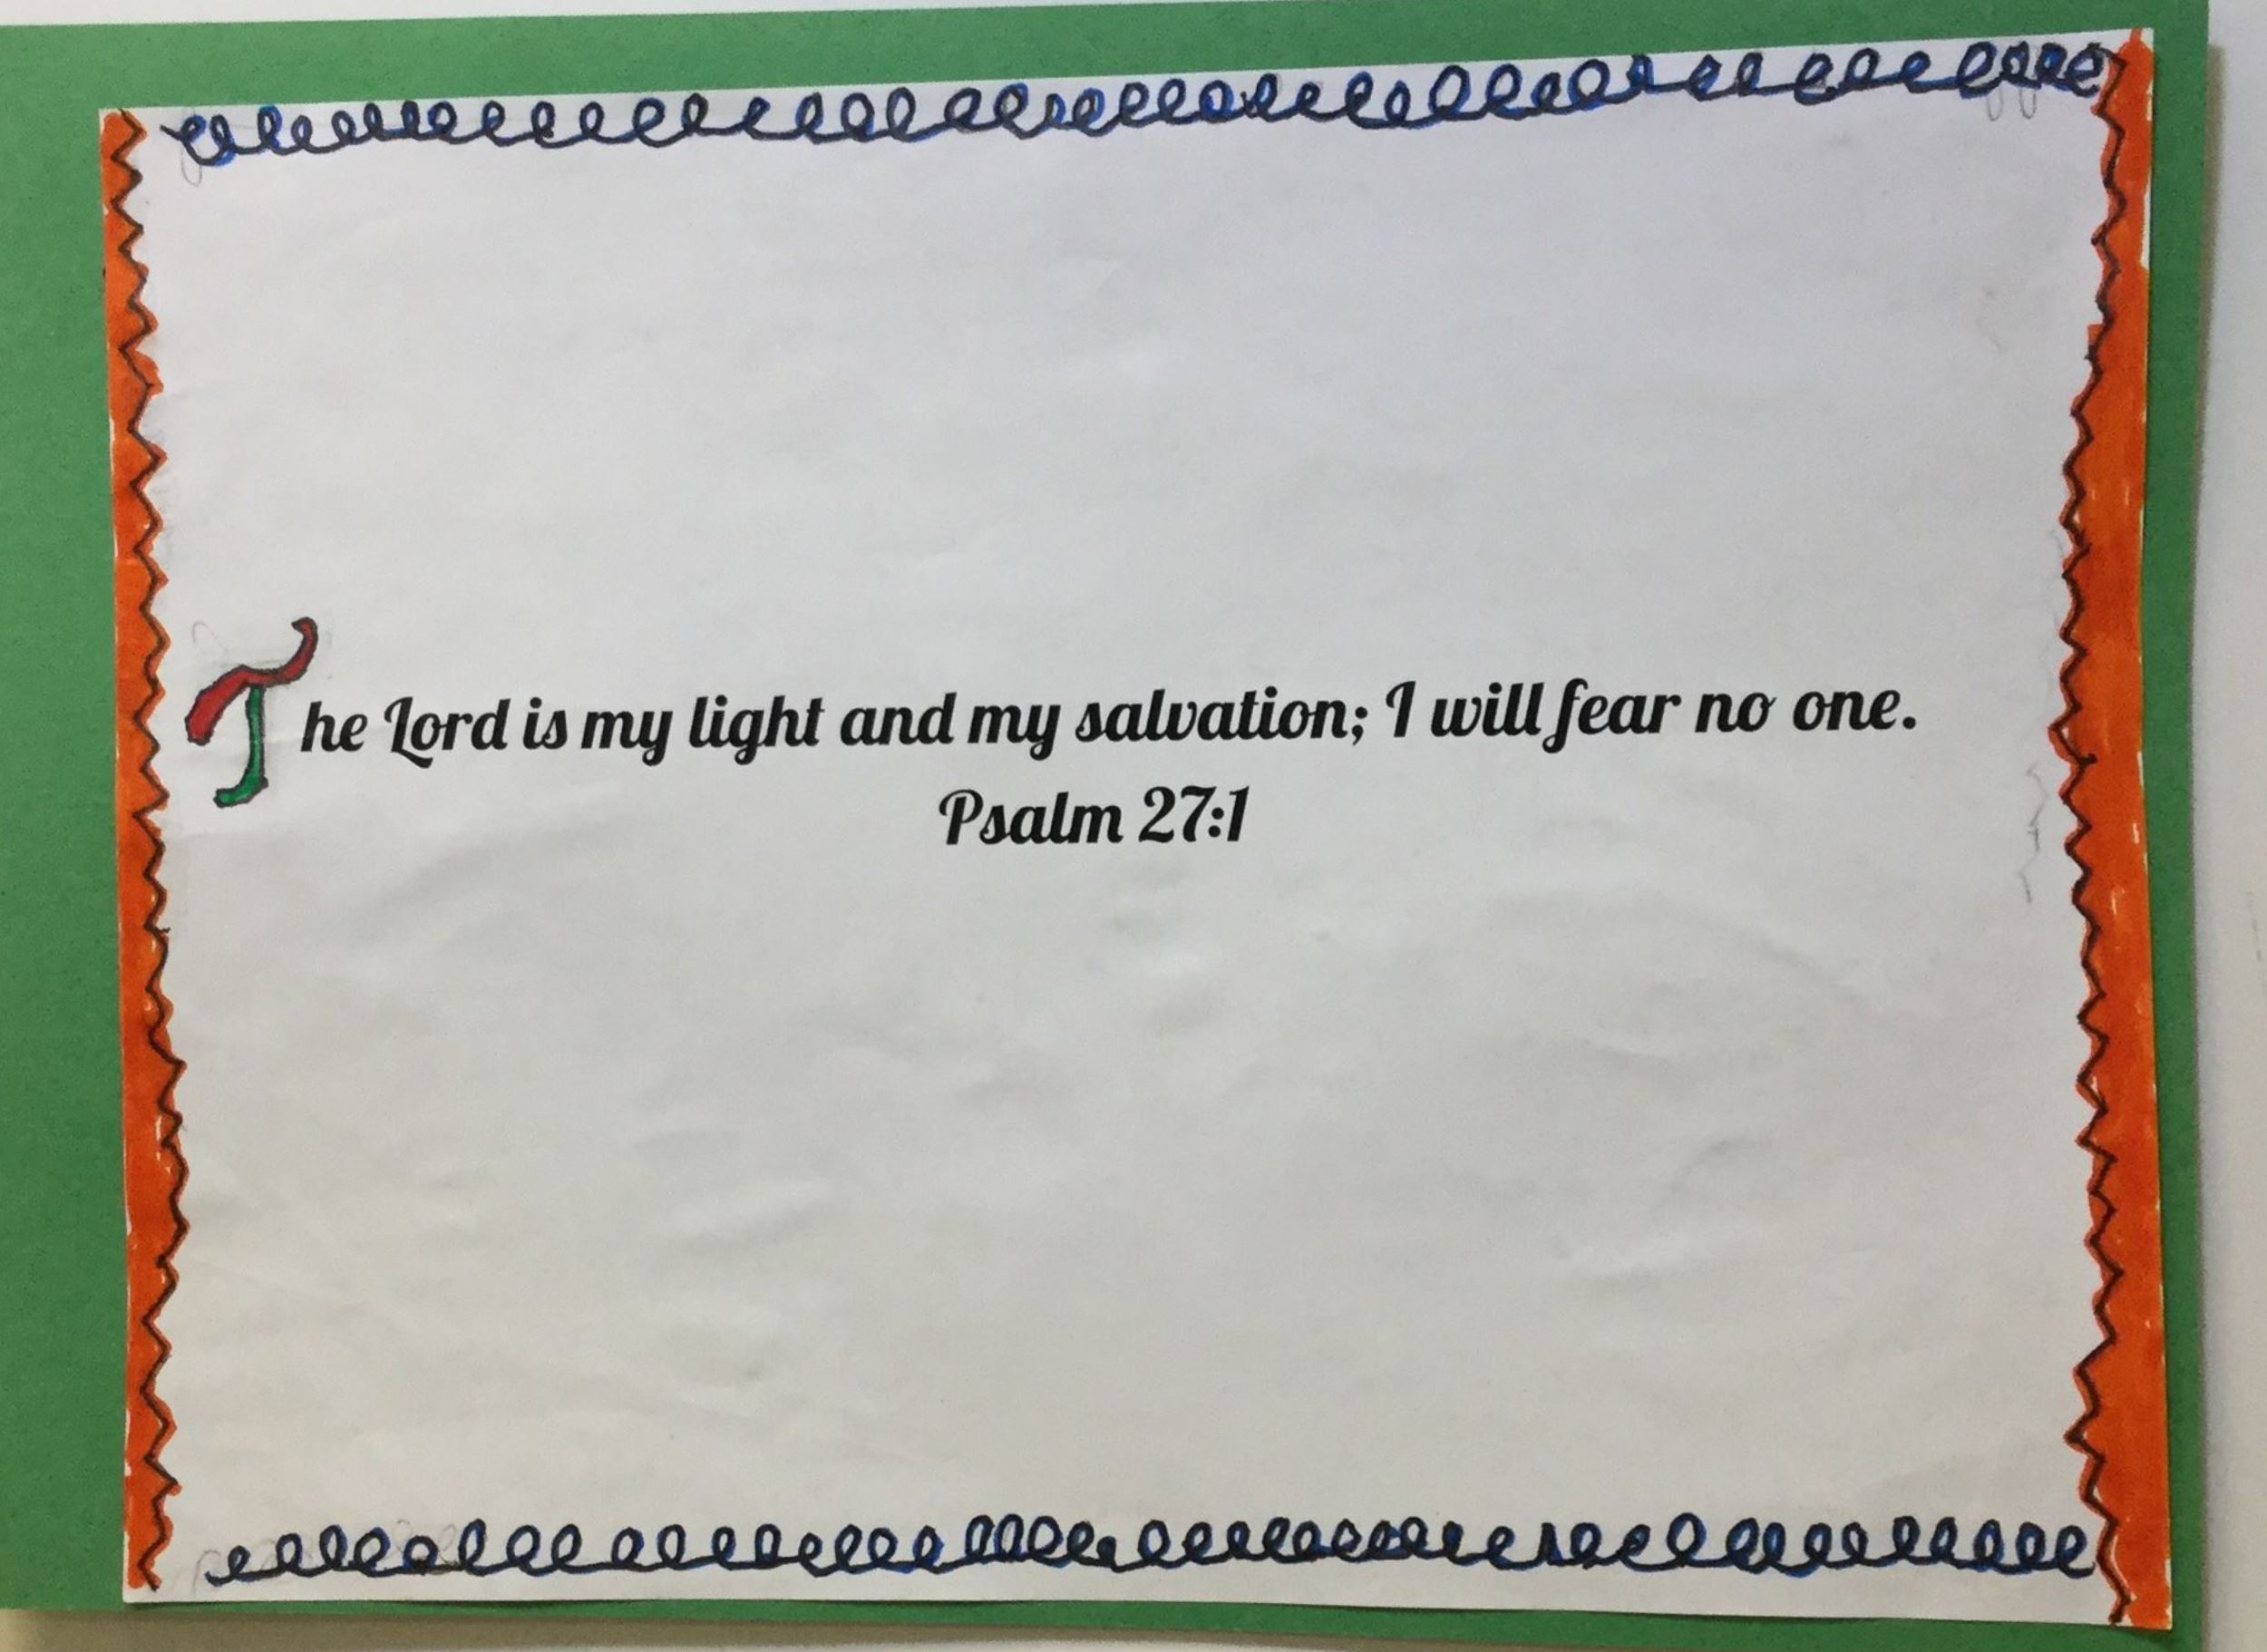 The Lord is my light and my salvation; I will fear no one.
Psalm 27:1